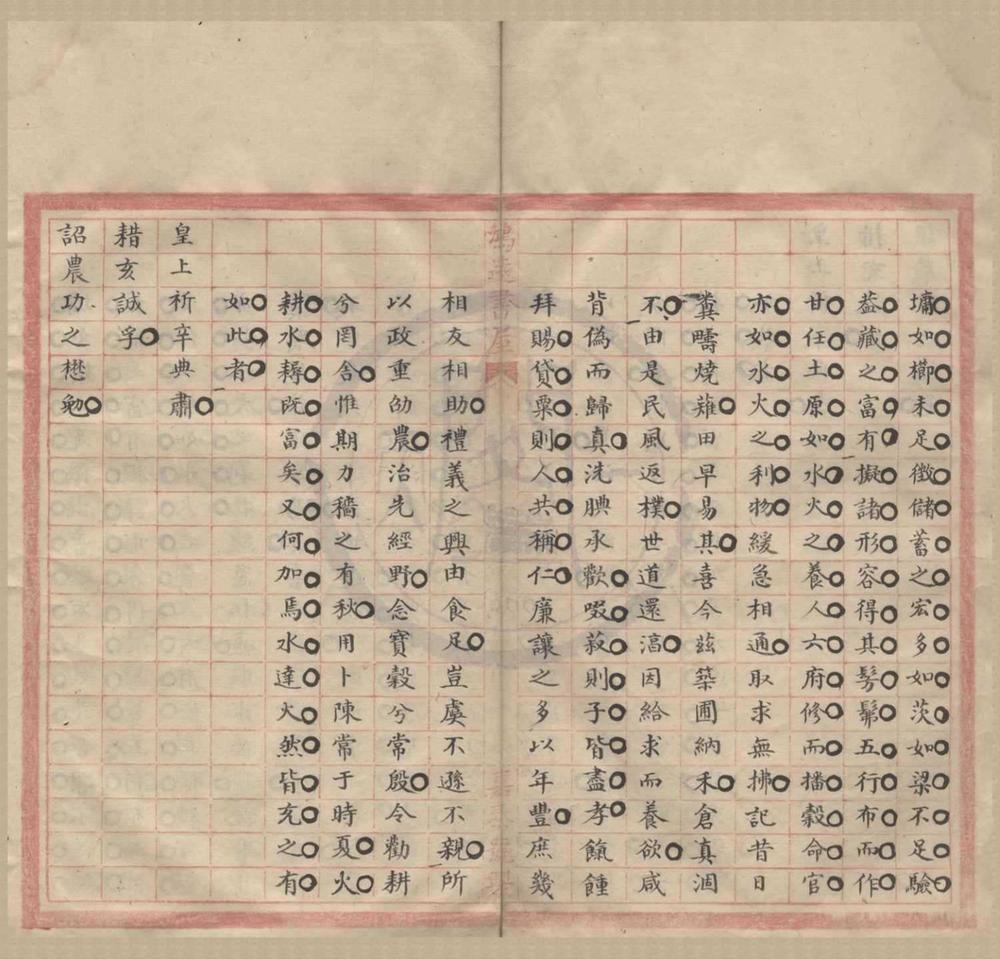 墉如櫛未足徵儲蓄之宏多如茨如梁不足驗
葢藏之富有擬諸形容得其髣髴五行布而作
甘任土原如水火之養人六府修而播穀命官
亦如水火之利物緩急相通取求無拂記昔日
糞疇燒薙田早易其喜今茲築圃納禾倉真涸
不由是民風返樸世道還滈因給求而養欲咸
背偽而歸真洗腆承歡啜菽則子皆盡孝餼餽
拜賜貸粟則人共稱仁廉讓之多以年豐庶幾
相友相助禮義之興由食足豈虞不遜不親所
以政重劭農治先經野念寶穀兮常殷令勸耕
兮罔舍惟期力穡之有秋用卜陳常于時夏火
耕水耨既富矣又何加焉水達火然皆充之有
如此者
皇上祈辛典肅
耤亥誠孚
詔農功之懋勉